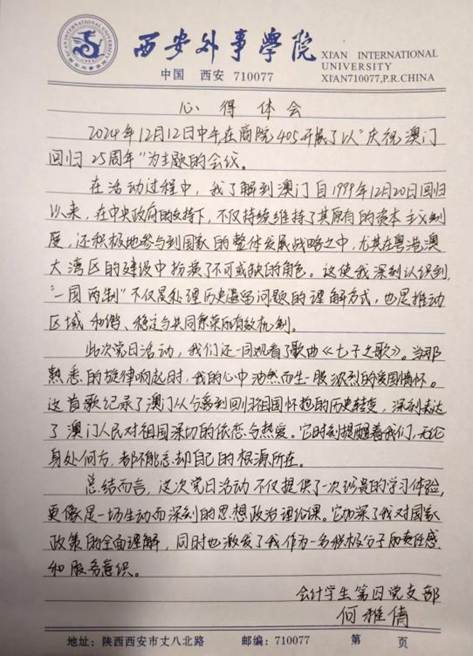 西安外事学院
XIAN INTERNATIONAL
UNIVERSITY
中国 西安 710077
XIAN710077,P.R.CHINA
心得体会
2024年12月12日中午,在商院405开展了以“庆祝澳门
回归25周年”为主题的会议。
在活动过程中，我了解到澳门自1999年12月20日回归
以来，在中央政府的支持下，不仅持续维持了其原有的资本主义制
度，还积极地参与到国家的整体发展战略之中，尤其在粤港澳
大湾区的建设中扮演了不可或缺的角色。这使我深刻认识到，
“一国两制”不仅是处理历史遗留问题的理解方式，也是推动
区域和谐、稳定与共同繁荣的有效机制。
此次党日活动，我们还一同观看了歌曲《七子之歌》。当那
熟悉的旋律响起时，我的心中油然而生一股浓烈的爱国情怀。
这首歌纪录了澳门从分离到回归祖国怀抱的历史转变，深刻表达
了澳门人民对祖国深切的依恋与热爱。它时刻提醒着我们，无论
身处何方，都不能忘却自己的根源所在。
总结而言，这次党日活动不仅提供了一次珍贵的学习体验，
更像是一场生动而深刻的思想政治理论课。它加深了我对国家
政策的全面理解，同时也激发了我作为一名积极分子的责任感
和服务意识。
会计学生第四党支部
何雅倩
地址：陕西西安市丈八北路 邮编：710077 第 页